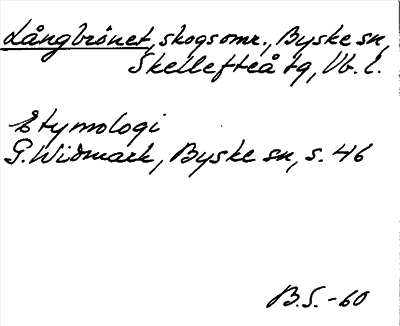 Långbrånet, skogsomr., Byske sn,
Skellefteå tg, Vb. l.
Etymologi
G. Widmark, Byske sn, s. 46
B.S.-60